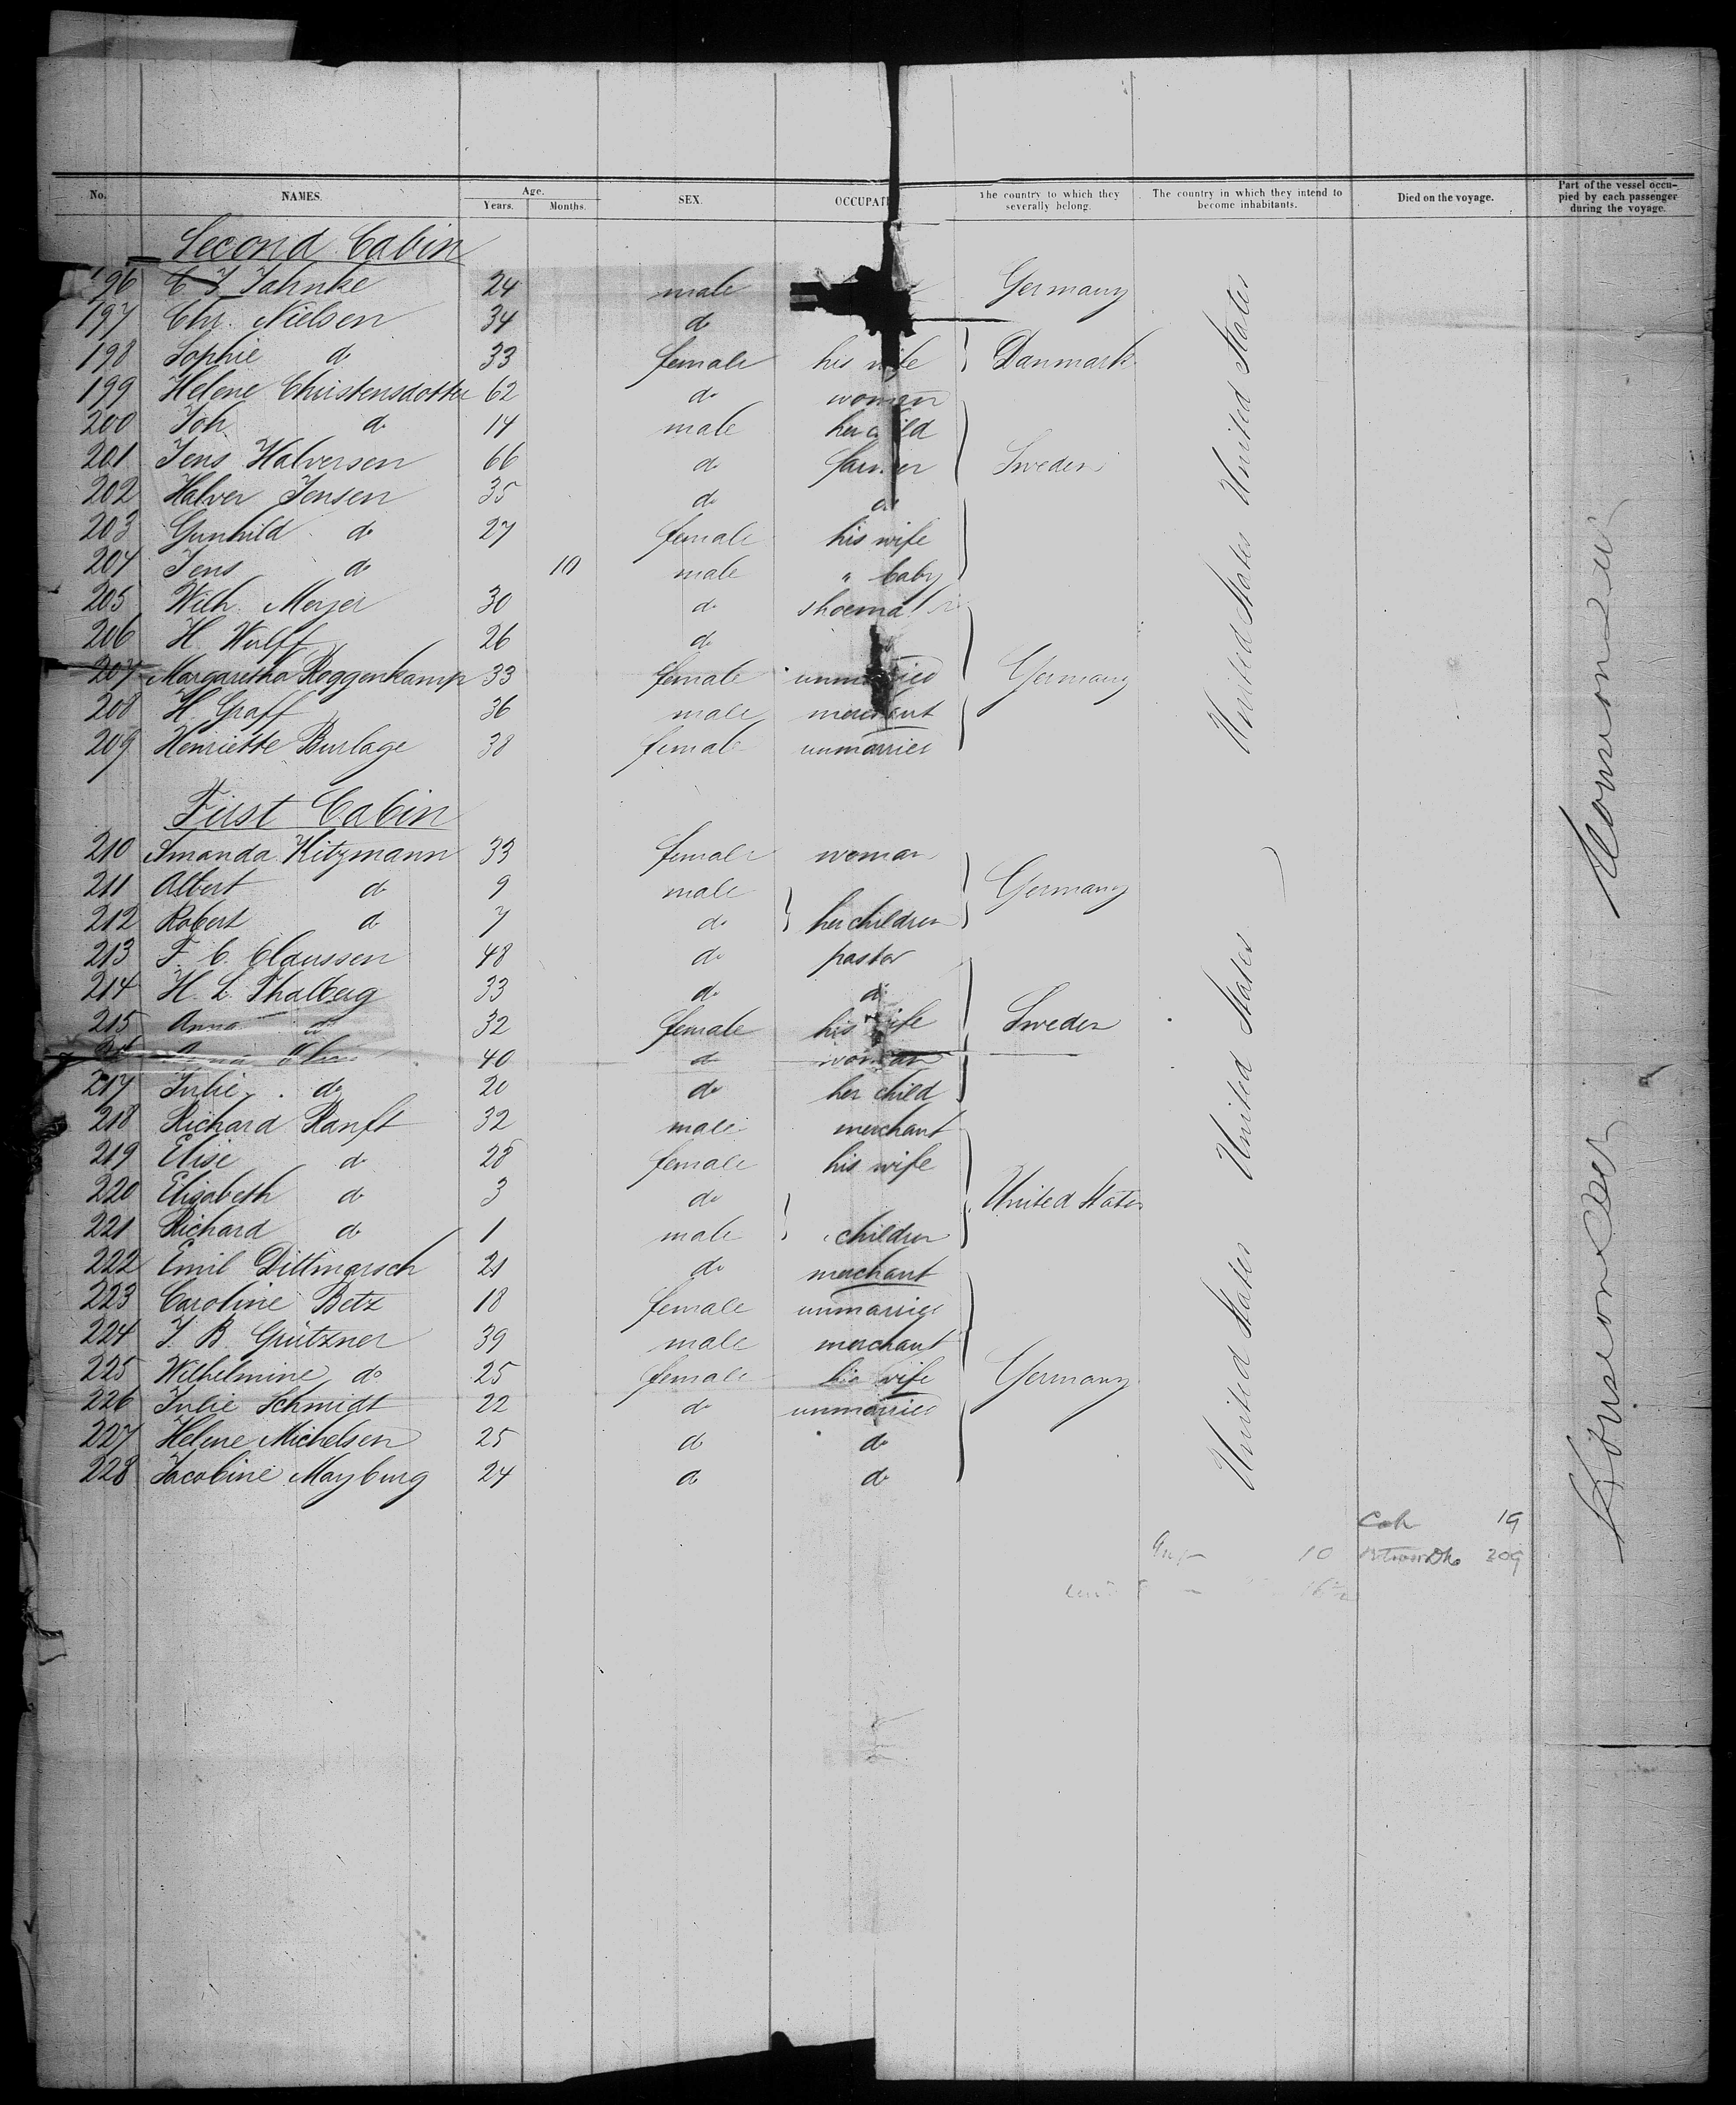 No. NAMES. Age. Years. Months. SEX. OCCUPATI The country to which they severally belong. The country in which they intend to become inhabitants. Died on the voyage. Part of the vessel occupied by each passenger during the voyage.
Second Cabin
196 C J Jahnke 24 male Germany
197 Chr. Nielsen 34 do
198 Sophie do 33 female his wife Danmark
199 Helene Christensdotter 62 do woman
200 Joh do 14 male her child
201 Jens Halversen 66 do farmer Sweden
202 Halver Jensen 35 do do
203 Gunhild do 27 female his wife
204 Jens do 10 male " baby
205 Wilh. Meyer 30 do shoemaker
206 H Wulff 26 do
207 Margaretha Roggenkamp 33 female unmarried Germany
208 H Graff 36 male merchant
209 Henriette Burlage 38 female unmarried
United States United States
First Cabin
210 Amanda Kitzmann 33 female woman
211 Albert do 9 male Germany
212 Robert do 7 do her children
213 F. C. Claussen 48 do pastor
214 H. L. Thalberg 33 do do
215 Anna do 32 female his wife Sweden
40 do woman
217 Julie do 20 do her child
218 Richard Ranft 32 male merchant
219 Elise do 28 female his wife
220 Elisabeth do 3 do United States
221 Richard do 1 male children
222 Emil Dittmarsch 21 do merchant
223 Caroline Betz 18 female unmarried
224 J. B. Grützner 39 male merchant
225 Wilhelmine do 25 female his wife Germany
226 Julie Schmidt 22 do unmarried
227 Helene Michelsen 25 do do
228 Jacobine Mayburg 24 do do
United States United States
Cab 19
10 209